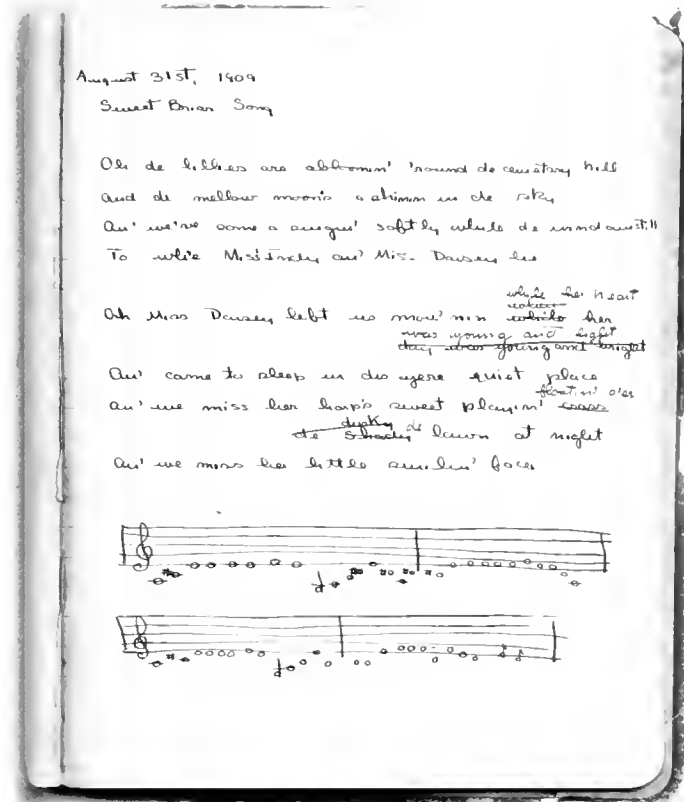 August 31st, 1909
Sweet Briar Song
Oh de lillies are abloomin' 'round de cemetary hill
and de mellow moon's a shinin in de sky
An' we've come a singin' softly while de wind am still
To whre Miss Indy an' Miss Daisey lie
while her heart
Oh Miss Daisey left us mou'nin while her
was young and light
day was young and bright
An' came to sleep in dis yere quiet place
floatin' o'er
an' we miss her harp's sweet playin' cross
dusky de
de shady lawn at night
An' we miss her little smilin' face